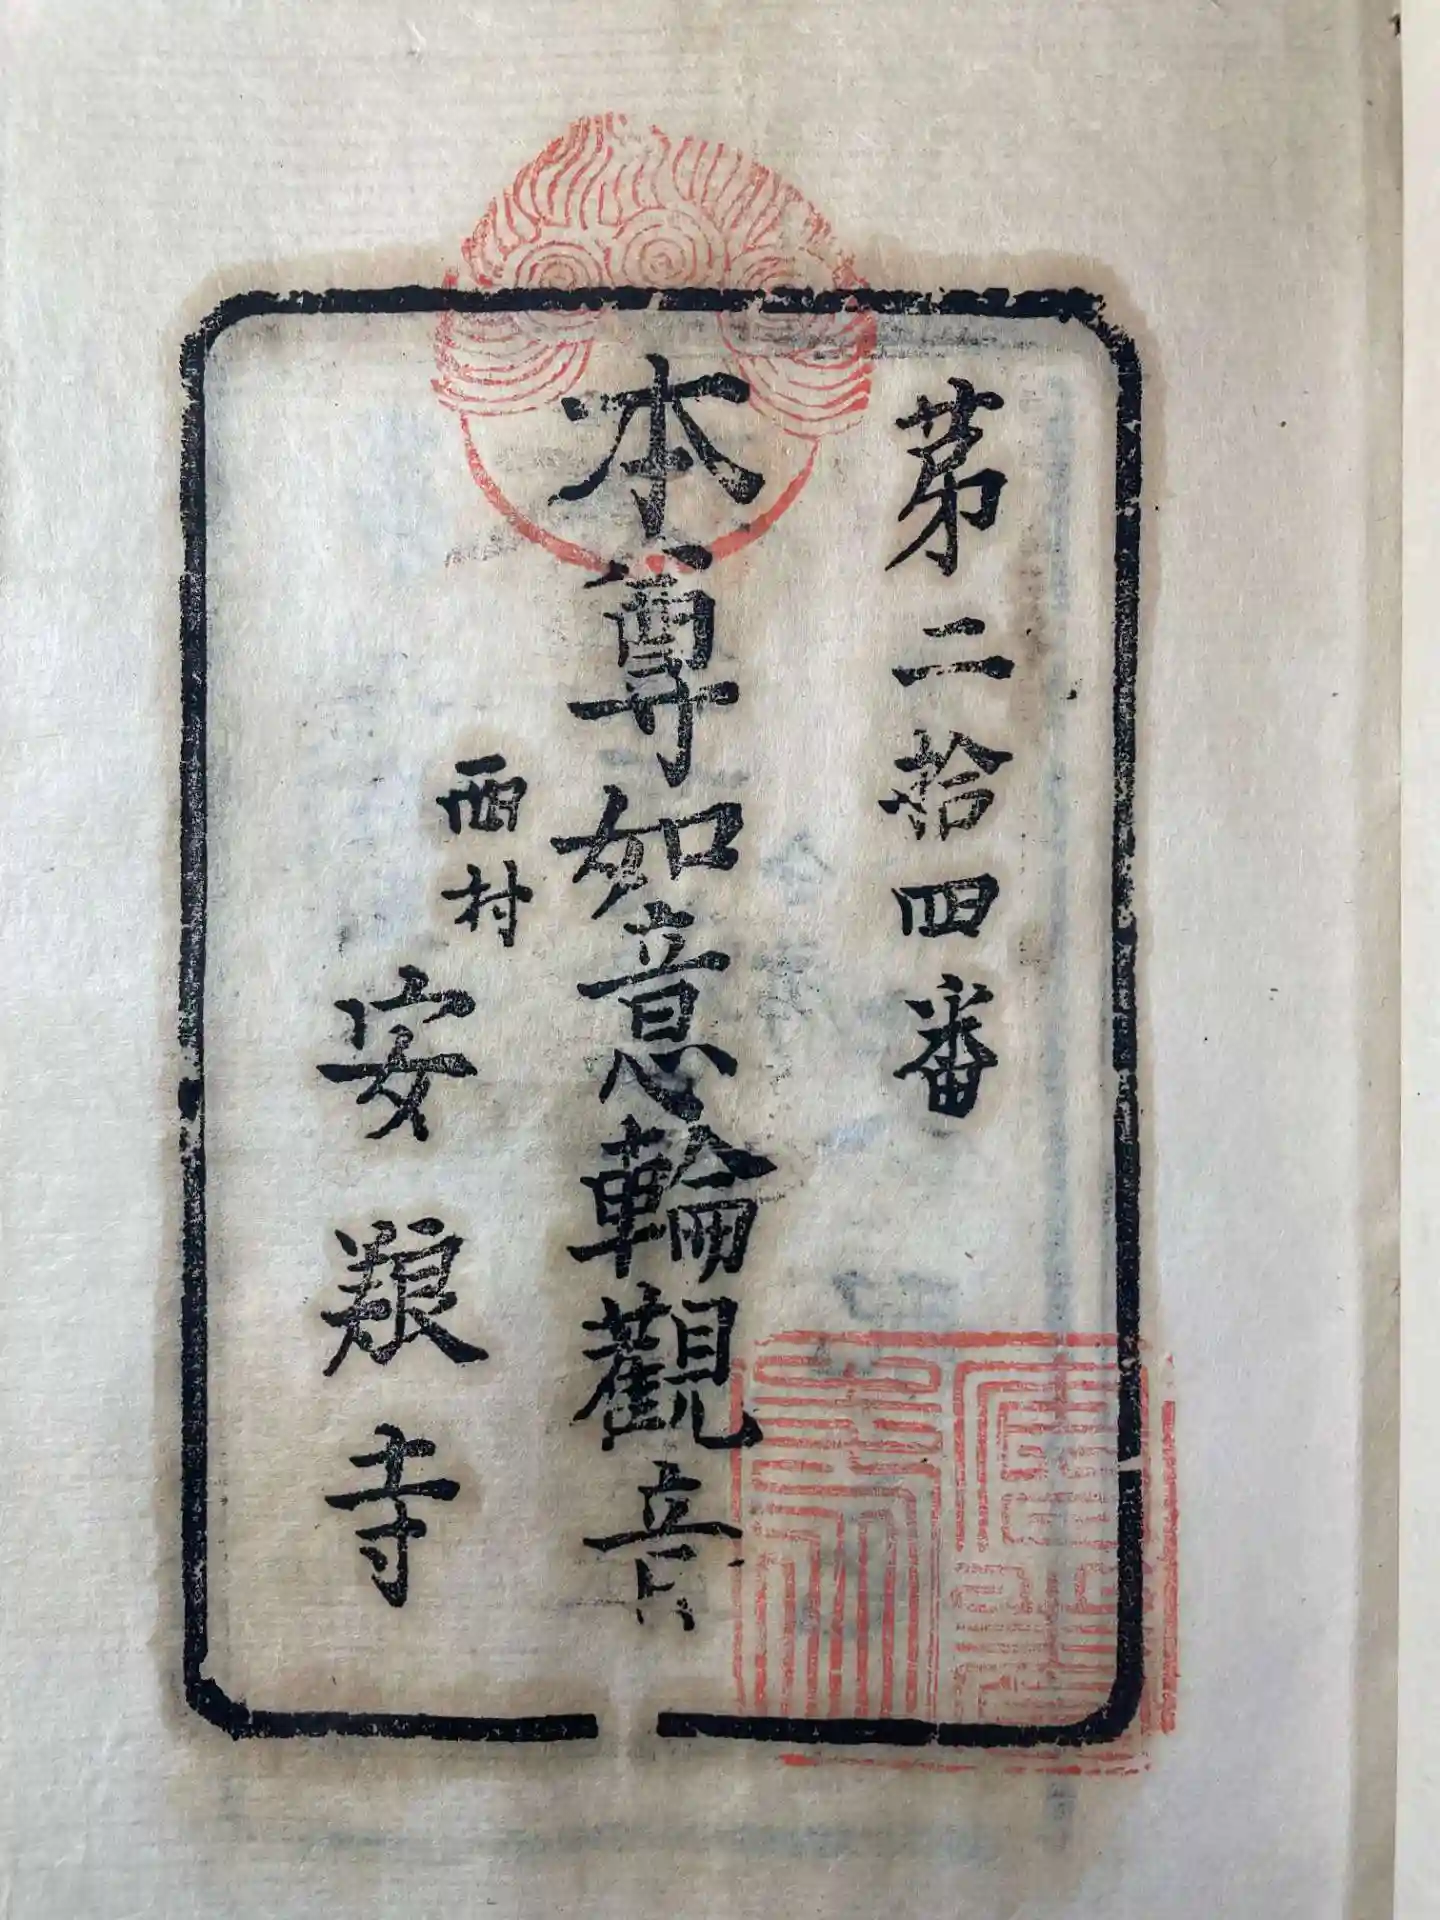 苐二拾四番
本尊如意輪觀音
西村
安養寺